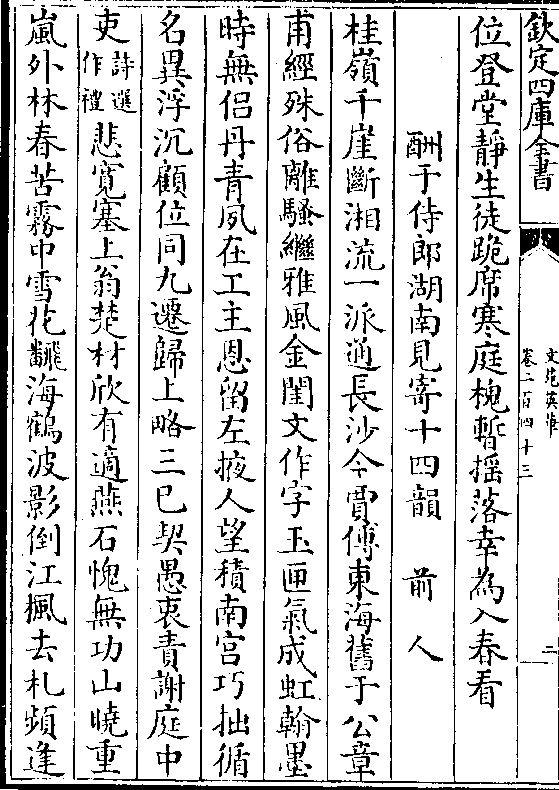 欽定四庫全書
文苑英華
卷二百四十三
二
位登堂靜生徒跪席寒庭槐暫揺落幸為入春看
酬于侍郎湖南見寄十四韻 前人
桂嶺千崖斷湘流一派通長沙今賈傅東海舊于公章
甫經殊俗離騷繼雅風金閨文作字玉匣氣成虹翰墨
時無侣丹青夙在工主恩留左掖人望積南宫巧拙循
名異浮沉顧位同九遷歸上略三已契愚衷責謝庭中
吏詩選作禮悲寛塞上翁楚材欣有適燕石愧無功山曉重
嵐外林春苦霧中雪花飜海鶴波影倒江楓去札頻逢